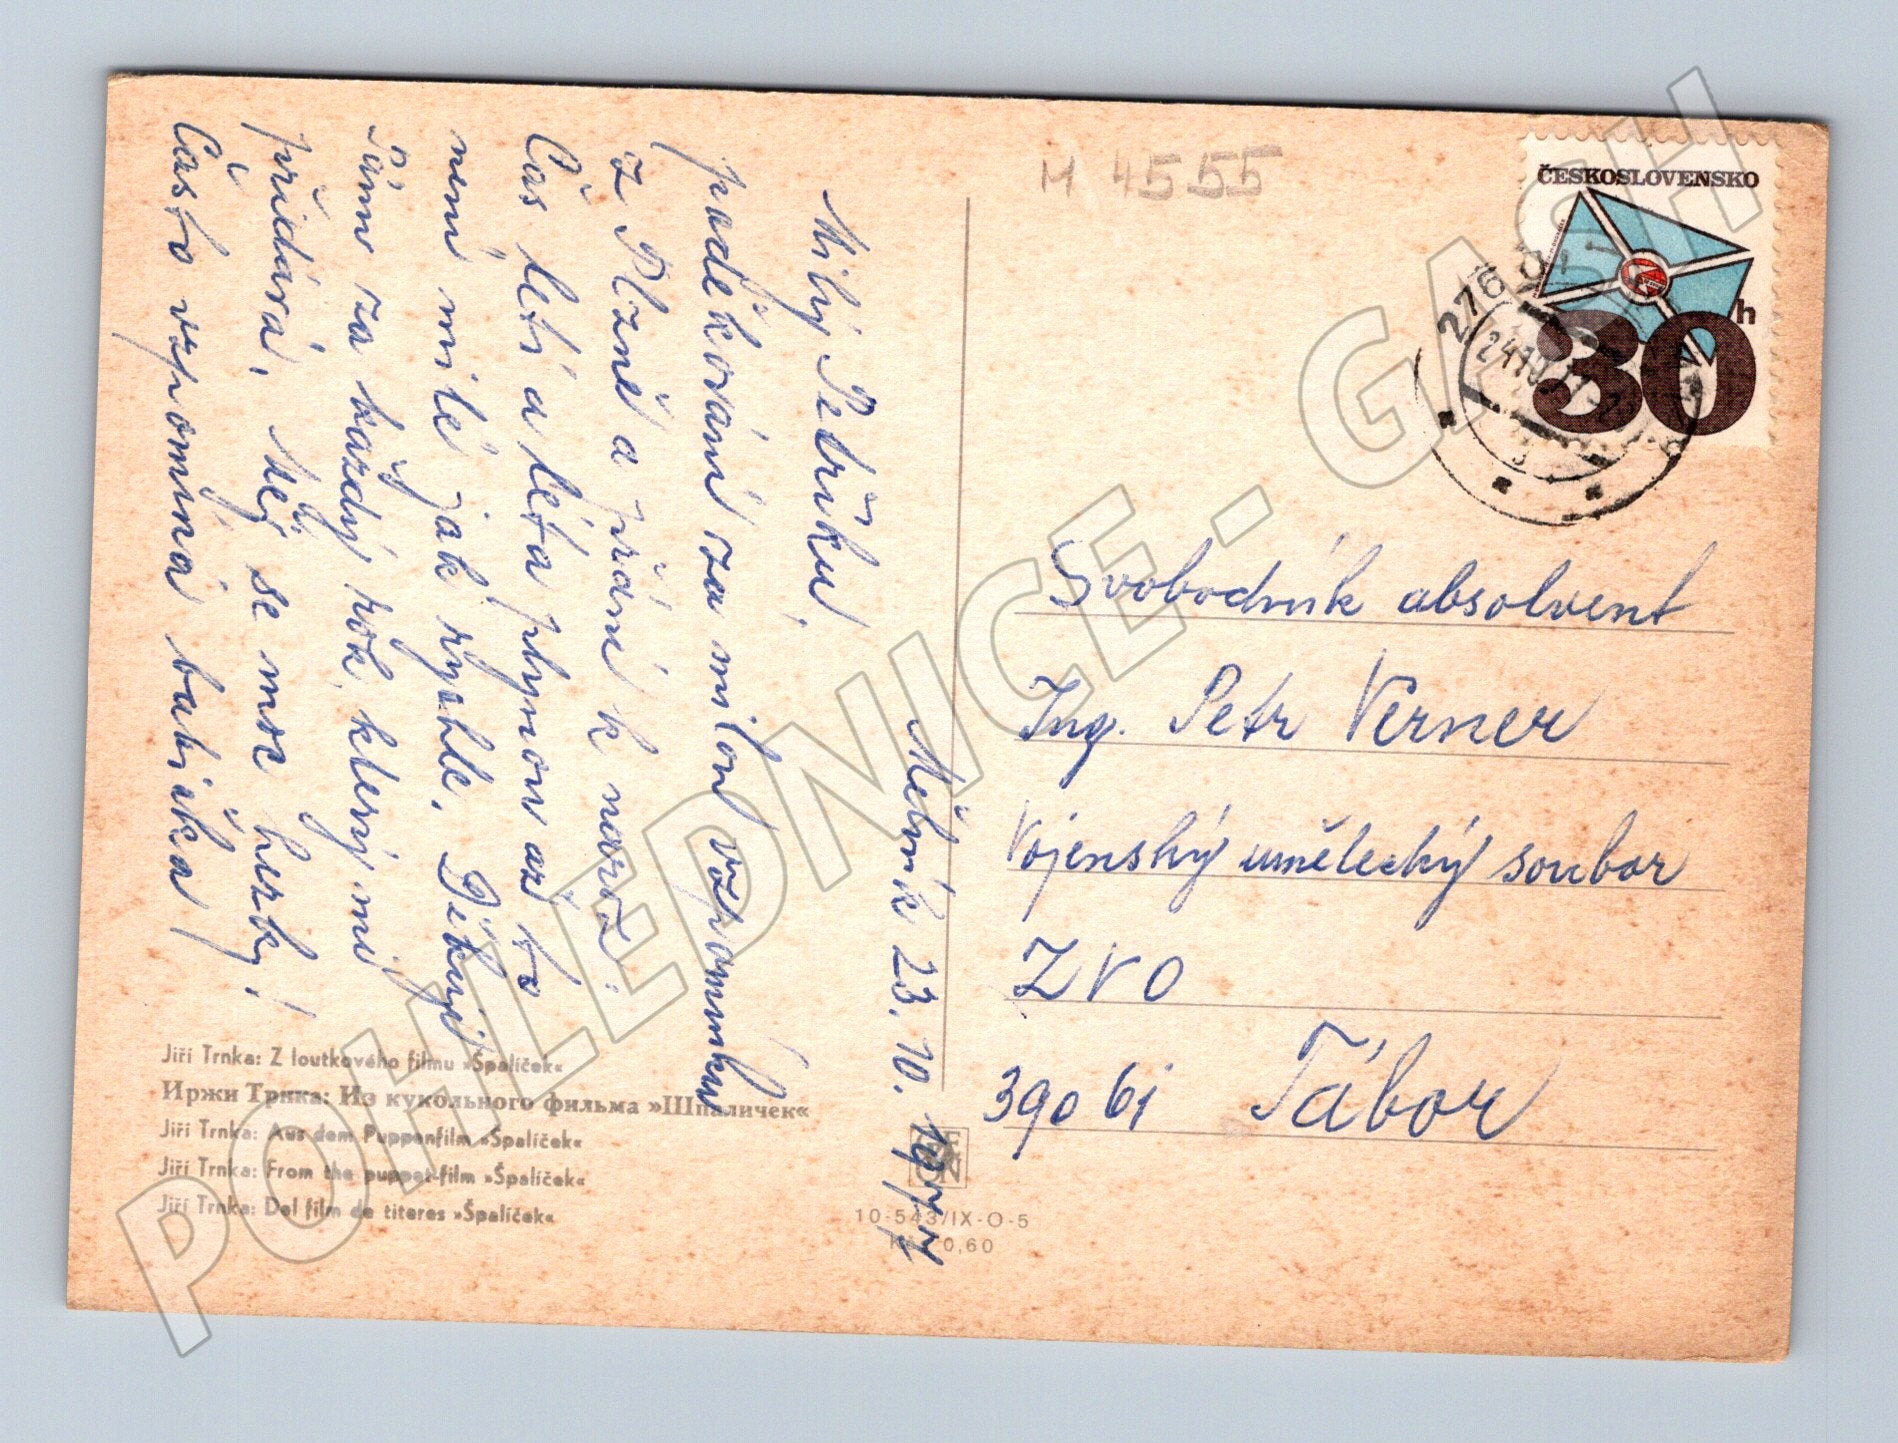 M 4555
ČESKOSLOVENSKO
30
h
276
24.10.
Mělník 23. 10. 1977
Milý Petříku,
poděkování za milou vzpomínku
z Plzně a přání k naroz.
Čas letí a léta plynou až to
není milé jak rychle. Děkuji
Pánu za každý rok, který mi
přidává. Měj se moc hezky!
Často vzpomíná babička
Svobodník absolvent
Ing. Petr Verner
Vojenský umělecký soubor
ZVO
390 61 Tábor
Jiří Trnka: Z loutkového filmu »Špalíček«
Иржи Трнка: Из кукольного фильма »Шпаличек«
Jiří Trnka: Aus dem Puppenfilm »Špalíček«
Jiří Trnka: From the puppet-film »Špalíček«
Jiří Trnka: Del film de titeres »Špalíček«
10-543/IX-O-5
Kčs 0,60
POHLEDNICE - GASH